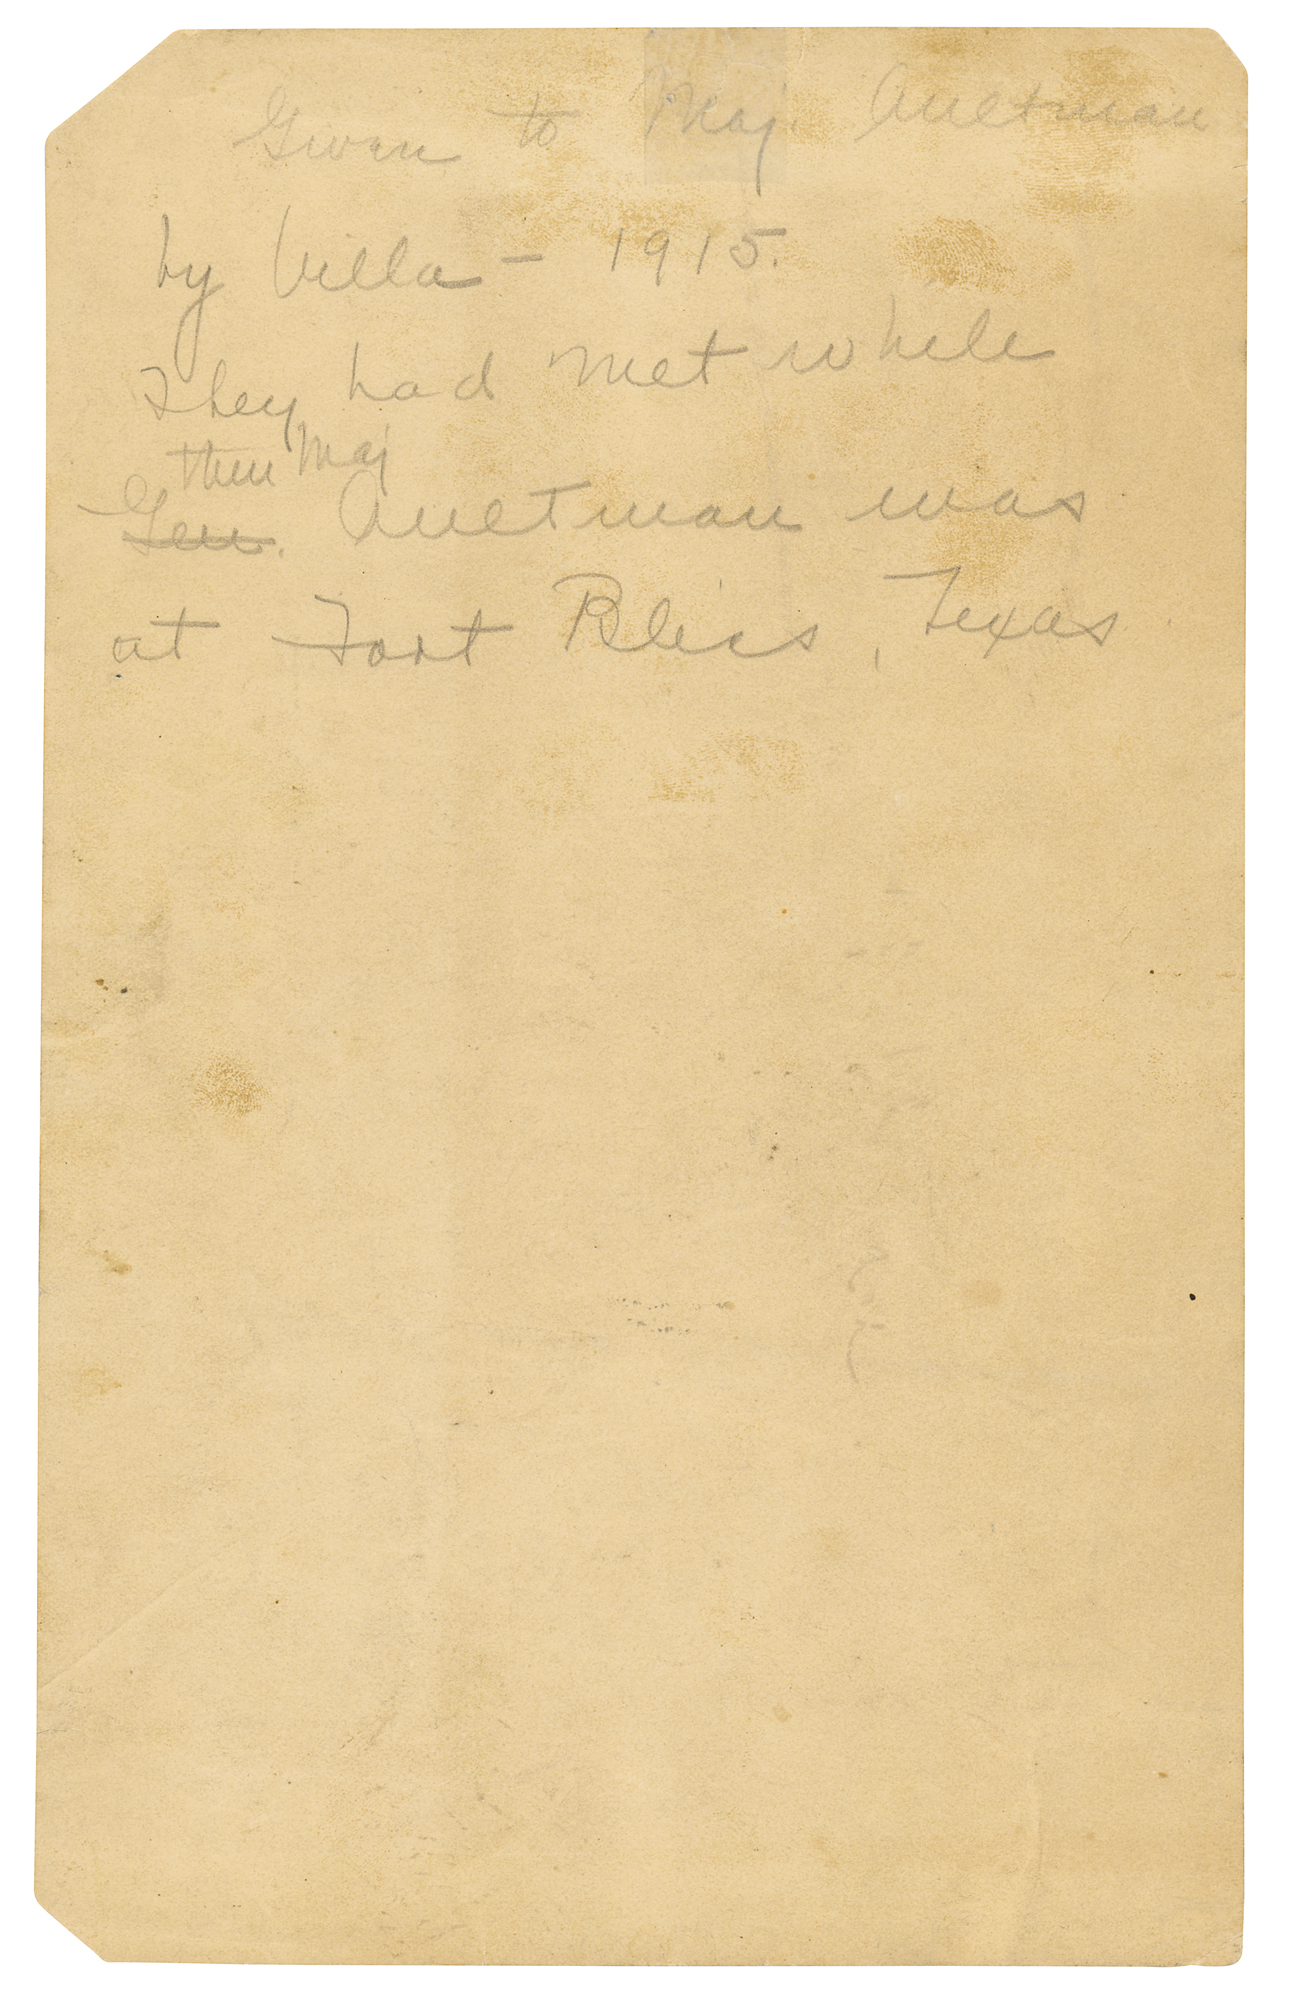 Given to Maj. Aultman
by Villa - 1915.
They had met while
then Maj
Gen. Aultman was
at Fort Bliss, Texas